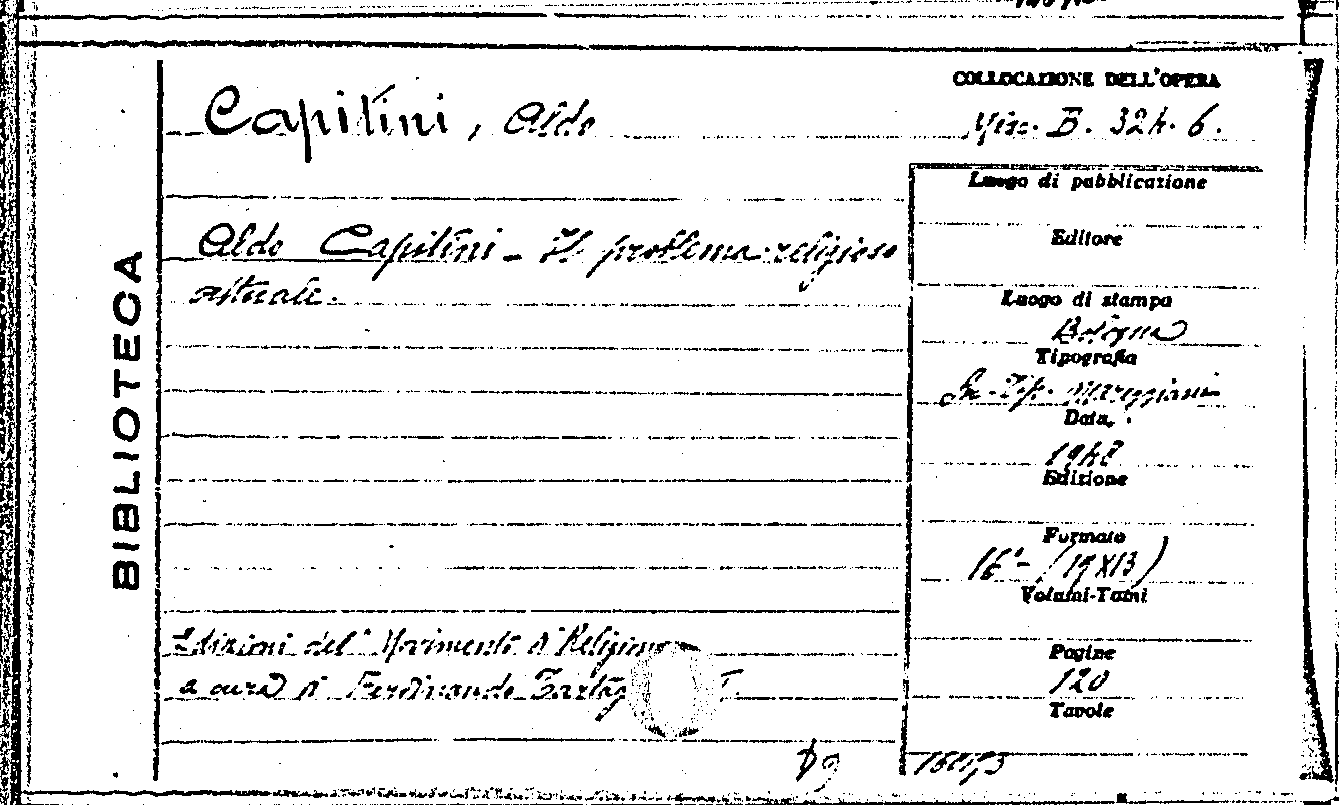 BIBLIOTECA
Capitini, Aldo
COLLOCAZIONE DELL'OPERA
Misc. B. 324. 6.
Aldo Capitini - Il problema religioso
attuale.
Luogo di pubblicazione
Editore
Luogo di stampa
Bologna
Tipografia
Tip. Mareggiani
Data
1948
Edizione
Formato
16°- (19X13)
Volumi-Tomi
Pagine
120
Tavole
Edizioni del Movimento di Religione
a cura di Ferdinando T.